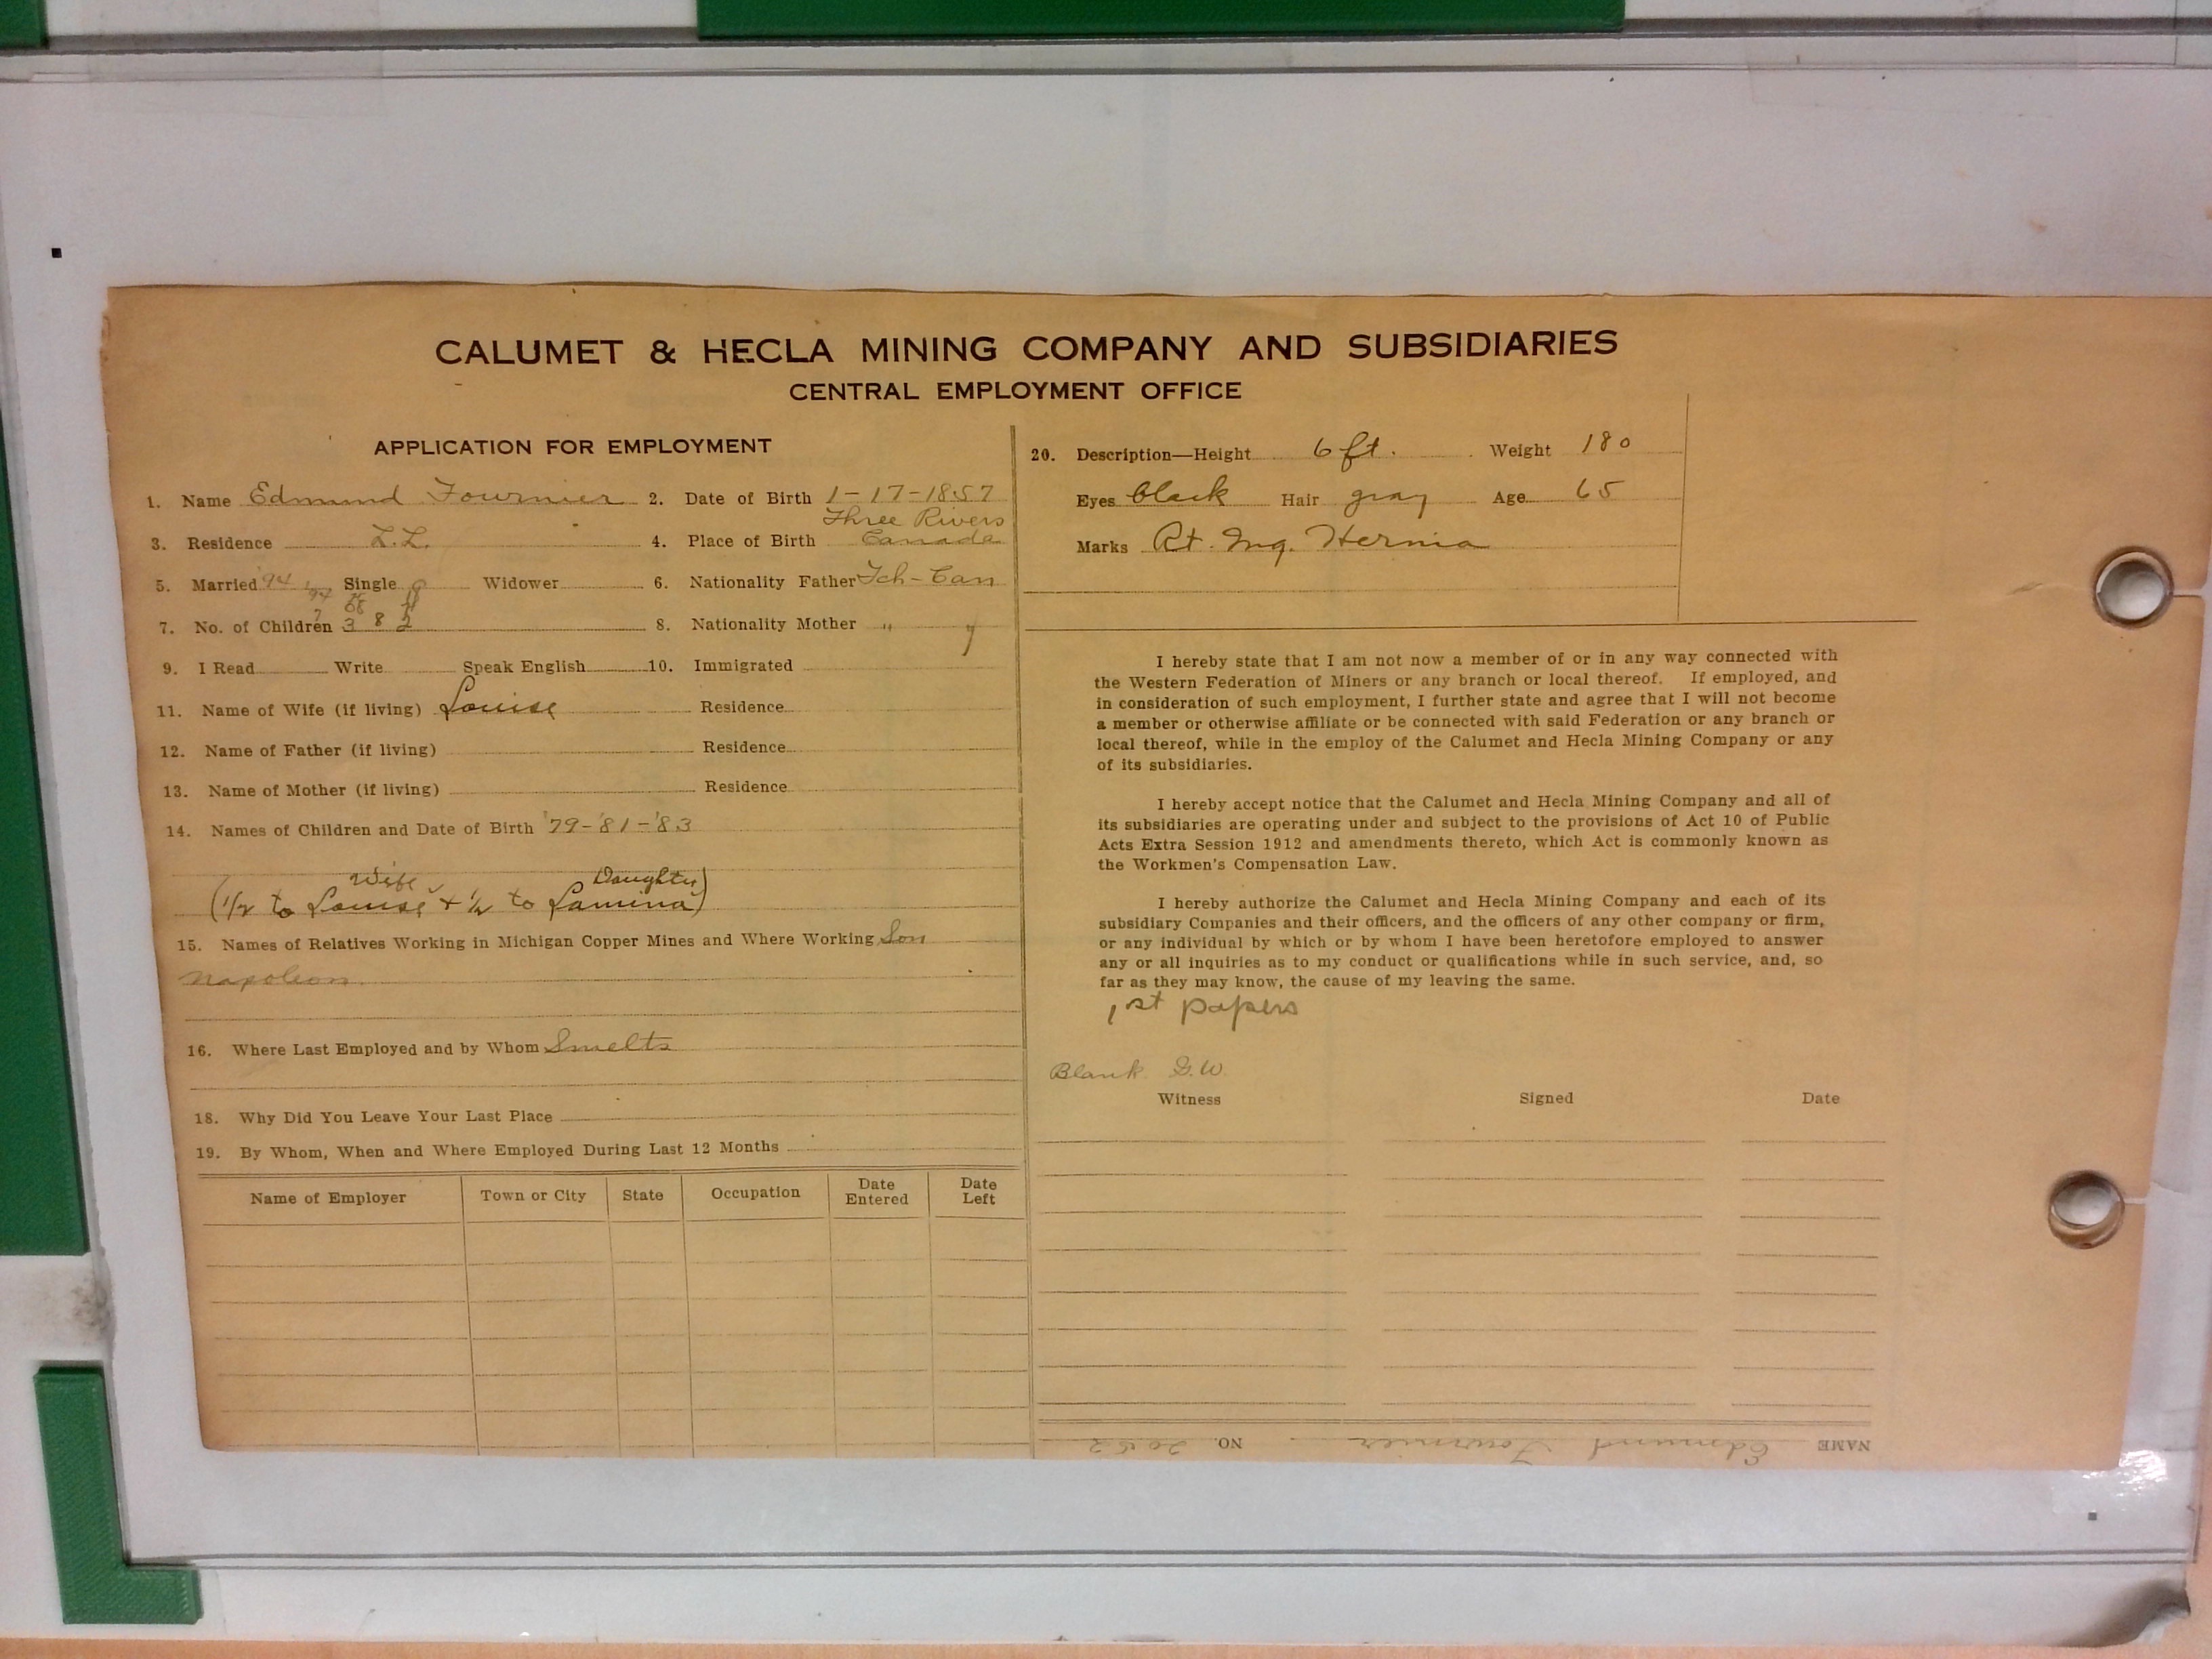 CALUMET & HECLA MINING COMPANY AND SUBSIDIARIES
CENTRAL EMPLOYMENT OFFICE
APPLICATION FOR EMPLOYMENT
1. Name Edmund Fournier 2. Date of Birth 1-17-1857
Three Rivers
3. Residence L.L. 4. Place of Birth Canada
5. Married 94 Single Widower 6. Nationality Father Fch-Can
7. No. of Children 3 8 2 8. Nationality Mother "
9. I Read Write Speak English 10. Immigrated
11. Name of Wife (if living) Louise Residence
12. Name of Father (if living) Residence
13. Name of Mother (if living) Residence
14. Names of Children and Date of Birth '79-'81-'83
Wife Daughter
(1/2 to Louise + 1/2 to Lamina)
15. Names of Relatives Working in Michigan Copper Mines and Where Working Son
Napoleon
16. Where Last Employed and by Whom Smelts
18. Why Did You Leave Your Last Place
19. By Whom, When and Where Employed During Last 12 Months
Name of Employer Town or City State Occupation Date Entered Date Left
20. Description—Height 6 ft. Weight 180
Eyes black Hair gray Age 65
Marks Rt. Ing. Hernia
I hereby state that I am not now a member of or in any way connected with
the Western Federation of Miners or any branch or local thereof. If employed, and
in consideration of such employment, I further state and agree that I will not become
a member or otherwise affiliate or be connected with said Federation or any branch or
local thereof, while in the employ of the Calumet and Hecla Mining Company or any
of its subsidiaries.
I hereby accept notice that the Calumet and Hecla Mining Company and all of
its subsidiaries are operating under and subject to the provisions of Act 10 of Public
Acts Extra Session 1912 and amendments thereto, which Act is commonly known as
the Workmen's Compensation Law.
I hereby authorize the Calumet and Hecla Mining Company and each of its
subsidiary Companies and their officers, and the officers of any other company or firm,
or any individual by which or by whom I have been heretofore employed to answer
any or all inquiries as to my conduct or qualifications while in such service, and, so
far as they may know, the cause of my leaving the same.
1st papers
Blank G.W.
Witness Signed Date
NAME Edmund Fournier NO. 2052